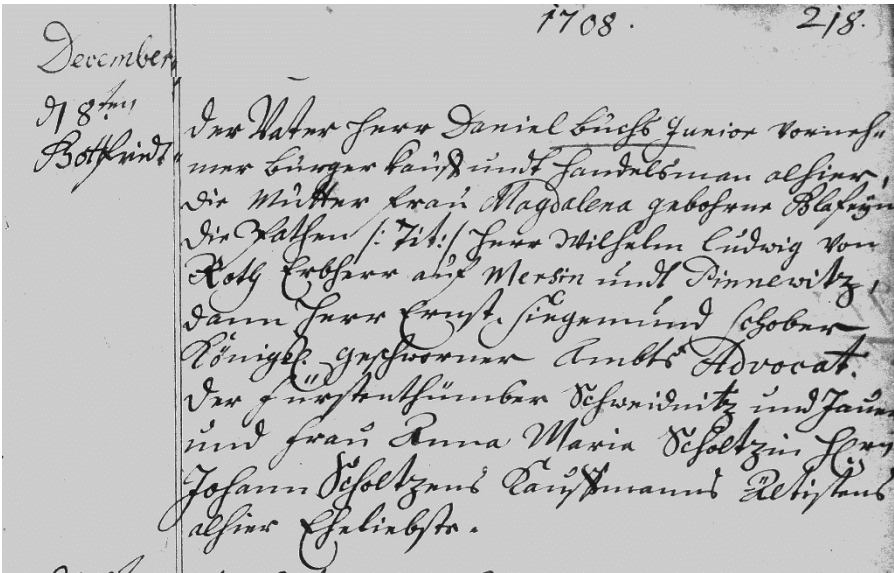 1708. 218.
December
d 18ten
Gottfriedt
der Vater Herr Daniel Buchs Junior vorneh-
mer Bürger Kauff undt Handelsman alhier,
die Mutter Frau Magdalena gebohrne
die Pathen /: Tit: / Herr Wilhelm Ludwig von
Roth Erbherr auf undt
dann Herr Ernst Siegemund Schober
Königl. geschworner Ambts Advocat.
der Fürstenthümber Schweidnitz und Jauer
und Frau Anna Maria Scholtzin Herrn
Johann Scholtzens Kauffmanns Ältistens
alhier Eheliebste.